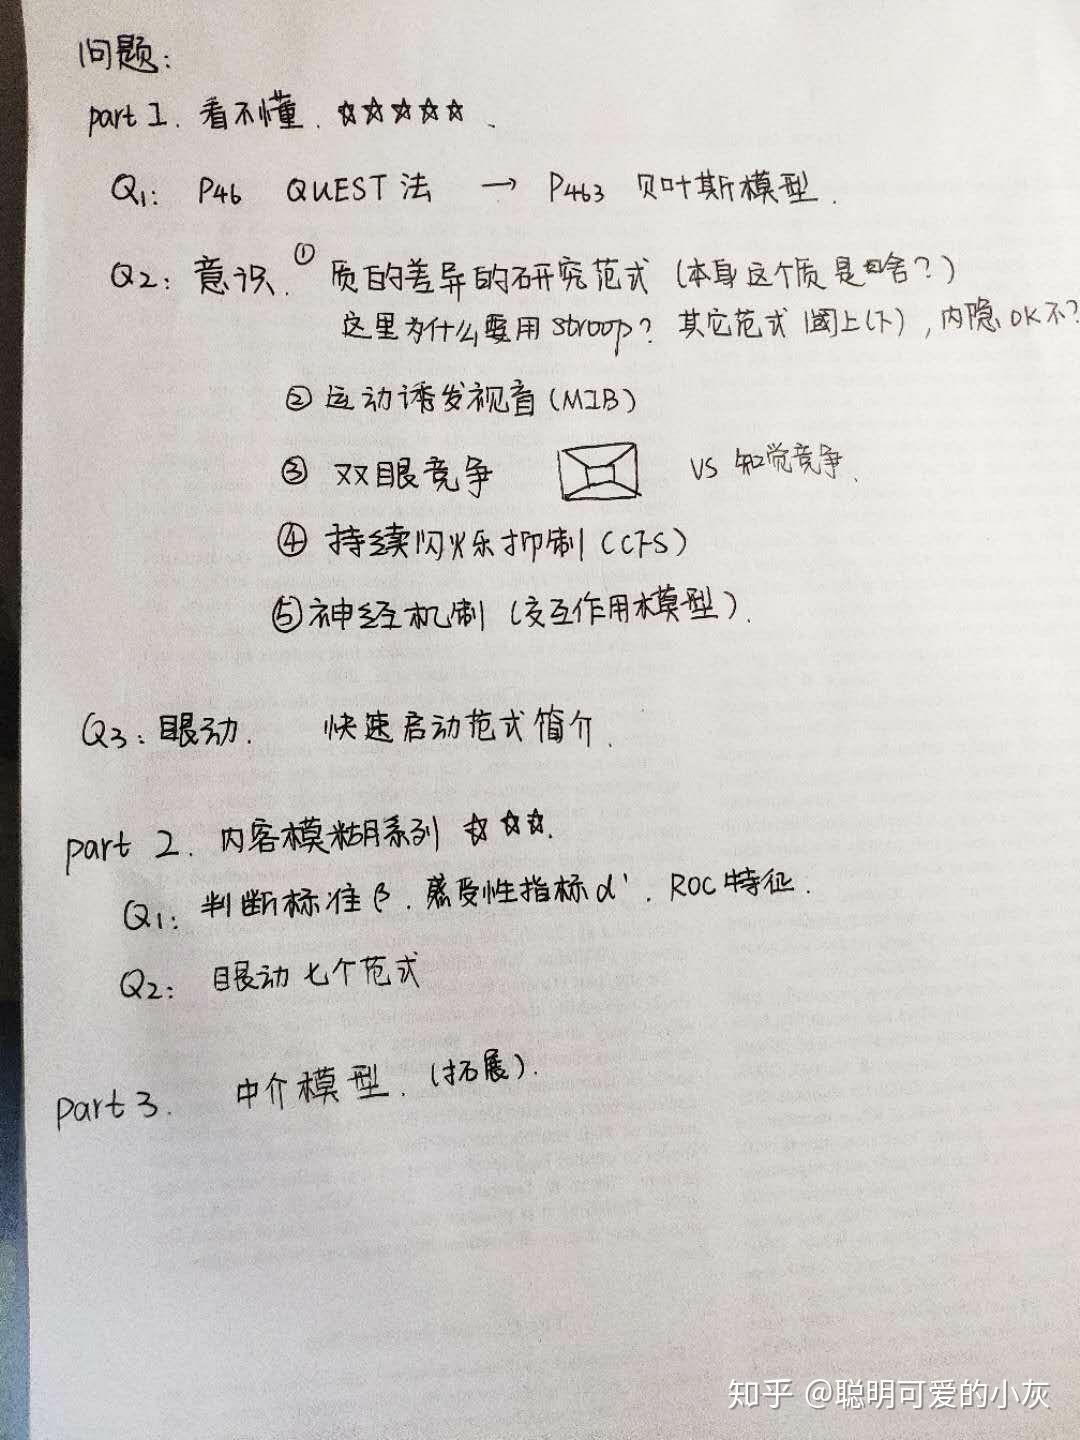 问题:
part 1. 看不懂. ☆☆☆☆☆.
Q1: P46 QUEST法 → P463 贝叶斯模型.
Q2: 意识. ① 质的差异的研究范式 (本身这个质是啥?)
这里为什么要用 stroop? 其它范式 阈上(下), 内隐 OK不?
② 运动诱发视盲 (MIB)
③ 双眼竞争 vs 知觉竞争.
④ 持续闪烁抑制 (CFS)
⑤ 神经机制 (交互作用模型).
Q3: 眼动. 快速启动范式简介.
part 2. 内容模糊系列 ☆☆☆.
Q1: 判断标准β. 感受性指标d'. ROC特征.
Q2: 眼动七个范式
part 3. 中介模型. (拓展).
知乎 @聪明可爱的小灰